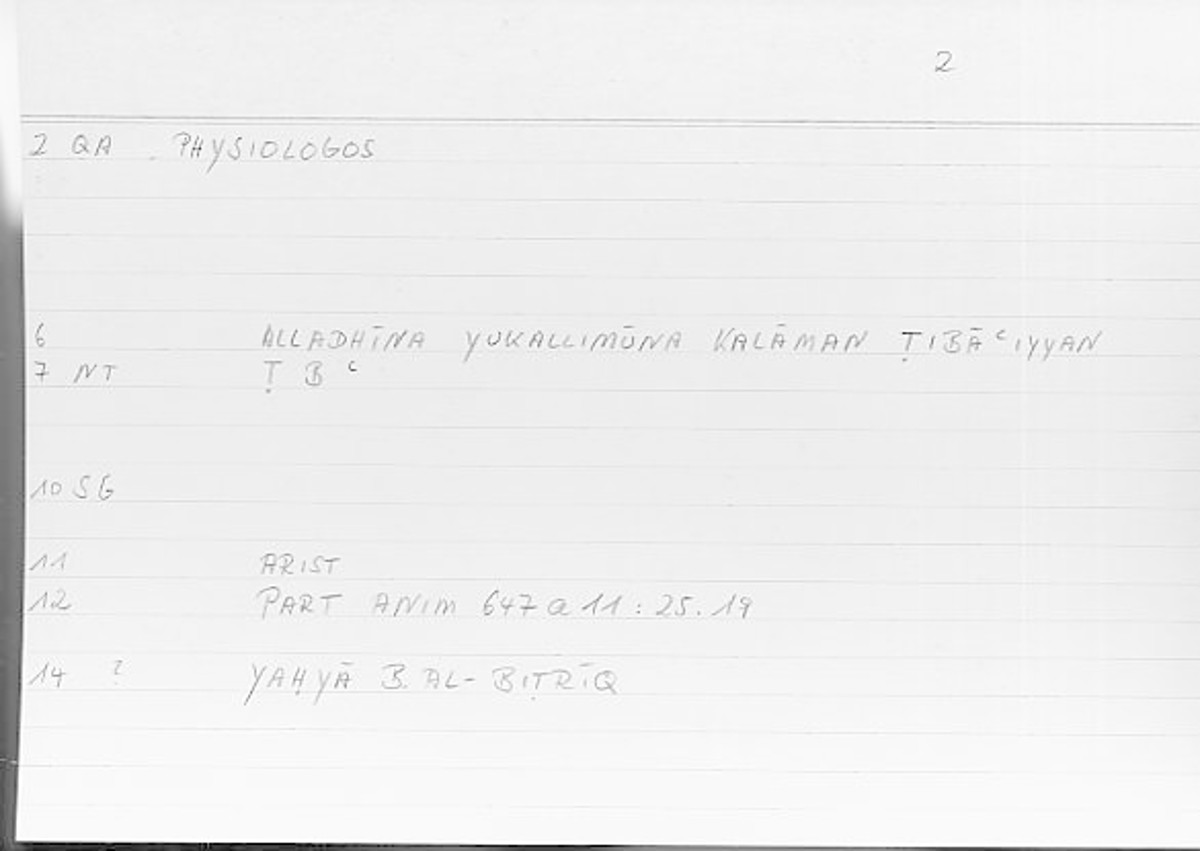 2
2 QA . PHYSIOLOGOS
6 ALLADHĪNA YUKALLIMŪNA KALĀMAN ṬIBĀʿIYYAN
7 NT Ṭ B ʿ
10 SG
11 ARIST
12 PART ANIM 647 a 11 : 25.19
14 ? YAḤYĀ B. AL-BIṬRĪQ